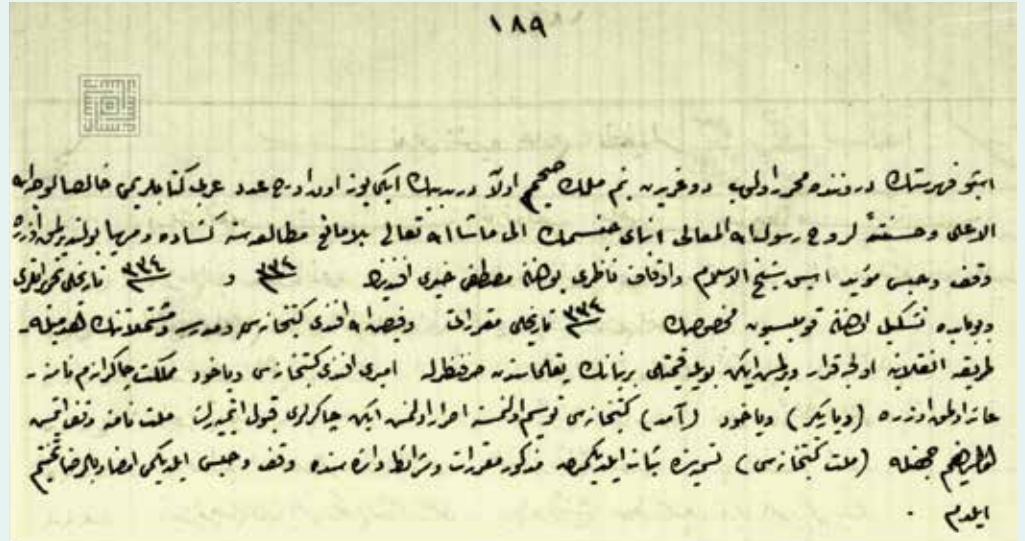 ١٨٩
اشبو فهرستك دروننده محرر اولوب دوغريدن بنم ملك صحيحم اولان دربيك ايكيوز اون اوچ عدد عربى كتابلريمى خالصا لوجه الله
الاعلى وحسنة لروح رسول الله المعالى ابناى جنسمك الى ماشا الله تعالى بلا مانع مطالعه سنه كشاده ومهيا بولندرلمق اوزره
وقف وحبس مؤبد شيخ الاسلام واوقاف ناظرى بولنان مصطفى خيرى افندينك ٣٣٢ و ٣٣٤ تاريخلى تحريراتلرى
وبوبابده تشكيل اولنان قوميسيون مخصوصك ٣٣٢ تاريخلى مقرراتى وفيض الله افندى كتبخانه سى ومدرسه ومشتملاتنك
طريقه اولنه قرار ويرلمش ايكن بويله قيمتلى بر بنانك صرف نظرله اميرى افندى كتبخانه سى وياخود مملكت چاكرانه م نامنه
عائد اولمق اوزره (ديار بكر) وياخود (آمد) كتبخانه سى توسيم اولنمسنه اصرار اولنمش ايكن چاكرلرى قبول ايتميه رك ملت نامنه وقف ايتمش
اولديغم جهتله (ملت كتبخانه سى) تسميه سنده ثبات ايلديكمدن مذكور مقررات وشرائط دائره سنده وقف وحبس ايلديكمى امضا وبالرضا تختيم
ايلدم .